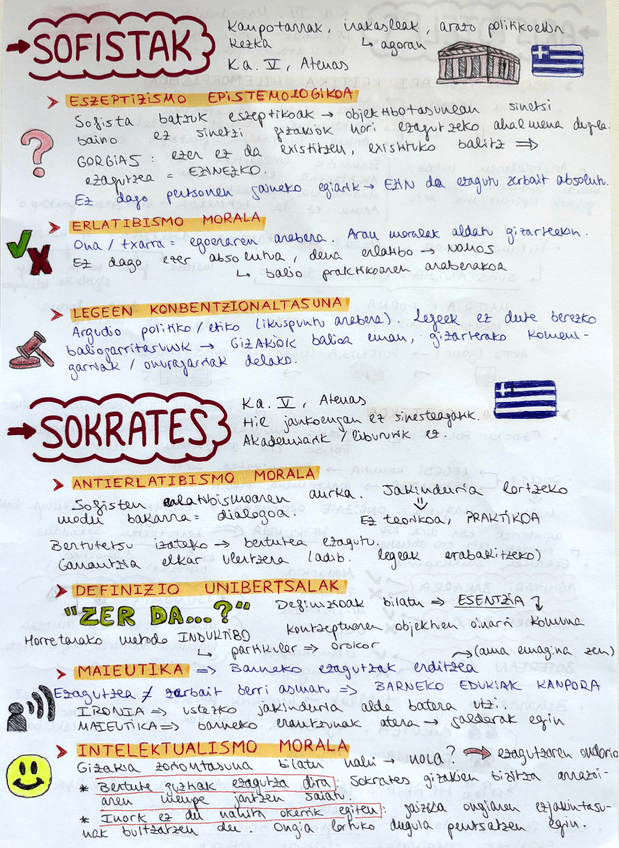 SOFISTAK
Kanpotarrak, irakasleak, arazo politikoekin
kezka ↳ agoran
K.a. V, Atenas
ESZEPTIZISMO EPISTEMOLOGIKOA
Sofista batzuk eszeptikoak → objektibotasunean sinetsi
baino ez sinetsi gizakiok hori ezagutzeko ahalmena dugula.
GORGIAS: ezer ez da existitzen, existituko balitz ⇒
ezagutzea = EZINEZKO.
Ez dago pertsonen gaineko egiarik → EZIN da ezagutu zerbait absolutu.
ERLATIBISMO MORALA
Ona / txarra = egoeraren arabera. Arau moralek aldatu gizartekin.
Ez dago ezer absolutua, dena erlatibo → NOMOS
↳ balio praktikoaren araberakoa
LEGEEN KONBENTZIONALTASUNA
Argudio politiko / etiko (ikuspuntu arabera). Legeek ez dute berezko
baliogarritasunik → Gizakiok balioa eman, gizarterako komeni-
garriak / onuragarriak delako.
SOKRATES
K.a. V, Atenas
Hil jainkoengan ez sinesteagatik.
Akademiarik / libururik ez.
ANTIERLATIBISMO MORALA
Sofisten erlatibismoaren aurka. Jakinduria lortzeko
modu bakarra = dialogoa. ⇓
Ez teorikoa, PRAKTIKOA
Bertutetsu izateko → bertutea ezagutu.
Garrantzia elkar ulertzera (adib. legeak erabakitzeko)
DEFINIZIO UNIBERTSALAK
"ZER DA...?" Definizioak bilatu ⇒ ESENTZIA
kontzeptuaren objektuen oinarri komuna
Horretarako metodo INDUKTIBO
↳ partikular ⇒ orokor
(ama emagina zen)
MAIEUTIKA ⇒ Barneko ezagutzak erditzea
Ezagutzea ≠ zerbait berri asmatu ⇒ BARNEKO EDUKIAK KANPORA
IRONIA ⇒ ustezko jakinduria alde batera utzi.
MAIEUTIKA ⇒ barneko erantzunak atera → galderak egin
INTELEKTUALISMO MORALA
Gizakia zoriontasuna bilatu nahi → nola? → ezagutzaren ondorio
* Bertute guztiak ezagutza dira: Sokrates gizakien bizitza arrazoi-
aren menpe jartzen saiatu.
* Inork ez du nahita okerrik egiten: gaizkia ongiaren ezjakintasu-
nak bultzatzen du. Ongia lortuko dugula pentsatzen egin.